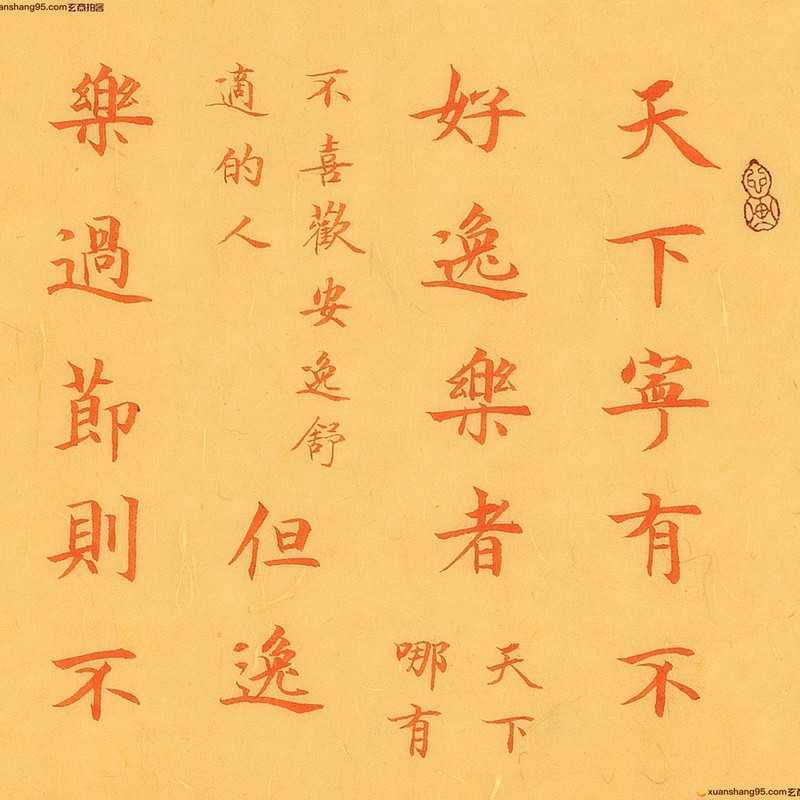 天下寧有不
好逸樂者
天下
哪有
不喜歡安逸舒
適的人
但逸
樂過節則不
anshang95.com玄商拍客
xuanshang95.com玄商